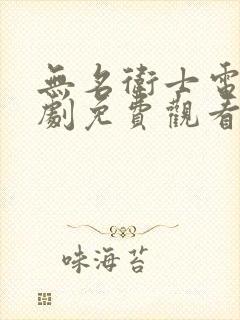 無名衛士電
劇免費觀看
味海苔